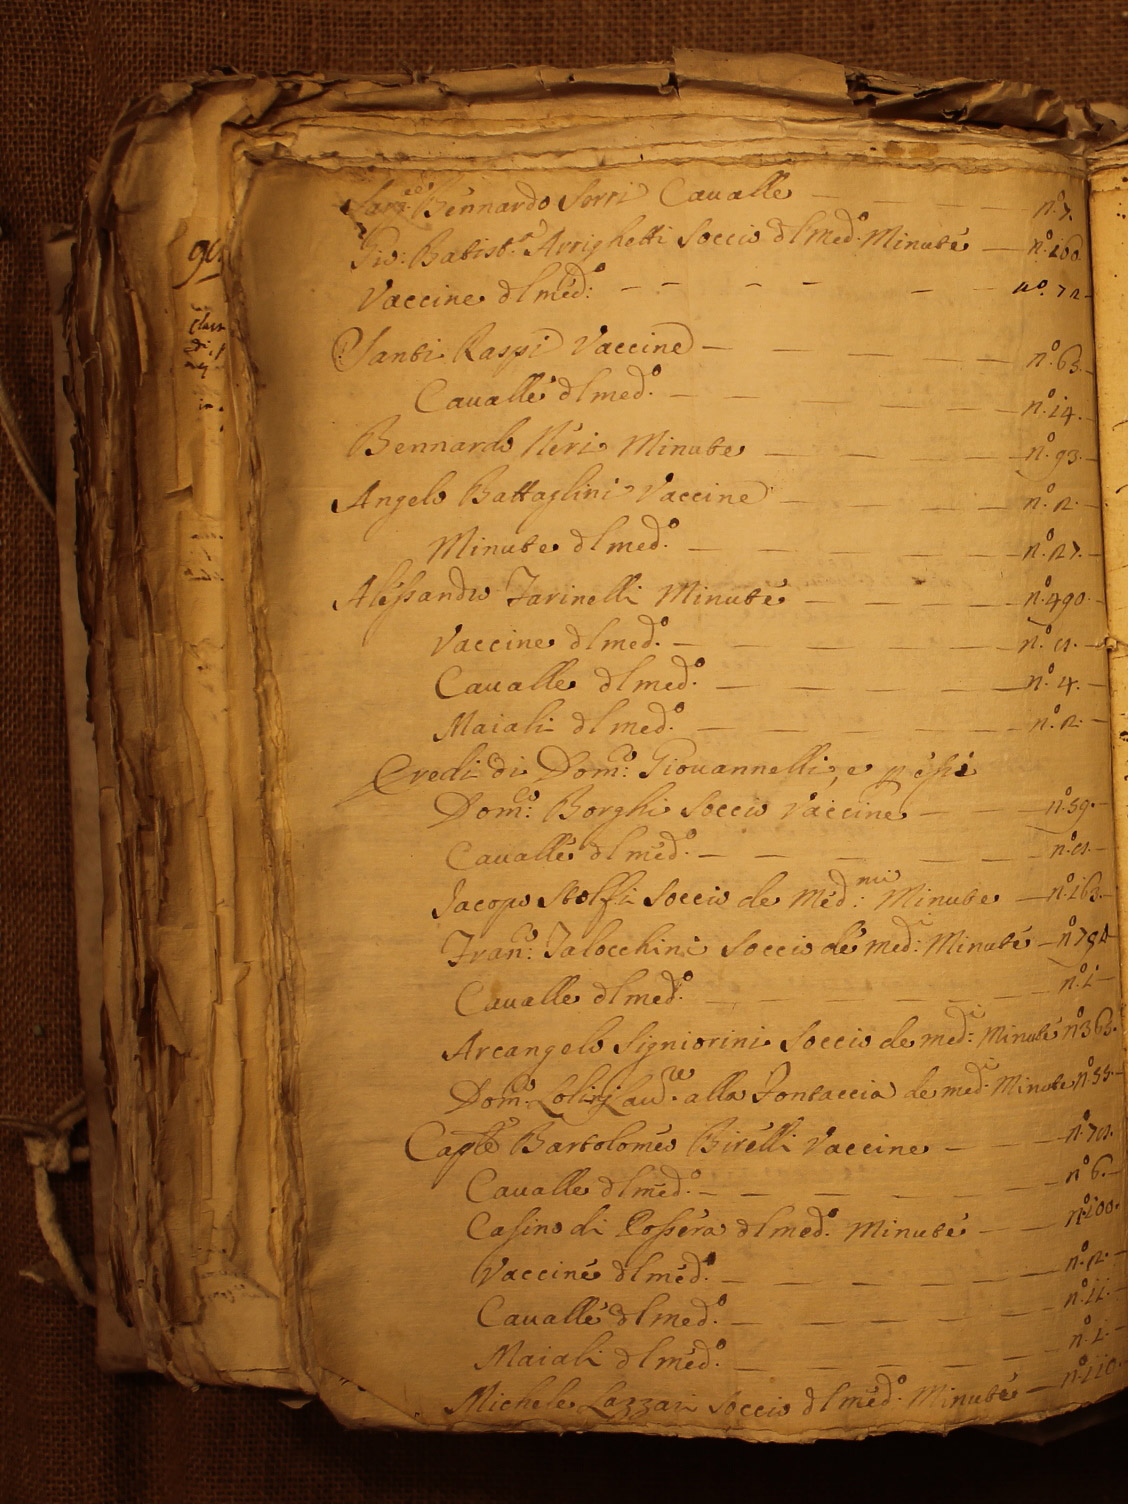 Bennardo Sorri Caualle — n.° 7.
Gio: Batist.ᵃ Arrighetti Soccio dl med.° Minute — n.° 160
Vaccine dl med.° — n.° 72
Santi Raspi Vaccine — n.° 63.
Caualle dl med.° — n.° 14.
Bennardo Neri Minute — n.° 93.
Angelo Battaglini Vaccine — n.° 2.
Minute dl med.° — n.° 27.
Alessandro Farinelli Minute — n.° 490.
Vaccine dl med.° —
Caualle dl med.° — n.° 4.
Maiali dl med.° — n.° 2.
Eredi di Dom.ᶜᵒ Giouannelli, e p essi
Dom.ᶜᵒ Borghi Soccio Vaccine — n.° 59.
Caualle dl med.° —
Jacopo Stolfi Soccio de Med.ᵐⁱ Minute — n.° 163.
Fran.ᶜᵒ Falocchini Soccio de med.ⁱ Minute —
Caualle dl med.° — n.° 1
Arcangelo Signiorini Soccio de med.ⁱ Minute n.° 363.
Dom.ᶜᵒ alla Fontaccia de med.ⁱ Minute n.° 55.
Bartolomeo Birelli Vaccine —
Caualle dl med.° — n.° 6.
Casino di Possera dl med.° Minute — n.° 100.
Vaccine dl med.° — n.° 2.
Caualle dl med.° — n.° 11.
Maiali dl med.° — n.° 1.
Michele Lazzari Soccio dl med.° Minute — n.° 110.